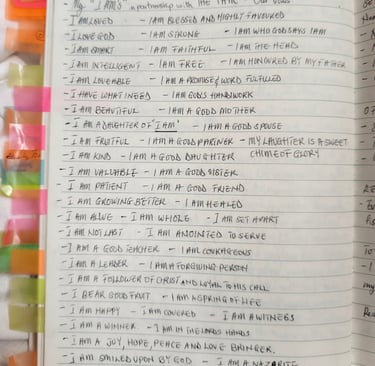 My "I AM'S" in partnership with the
- I AM LOVED - I AM BLESSED AND HIGHLY FAVOURED
- I LOVE GOD - I AM STRONG - I AM WHO GOD SAYS I AM
- I AM SMART - I AM FAITHFUL - I AM THE HEAD
- I AM INTELLIGENT - I AM FREE - I AM HONOURED BY MY FATHER
- I AM LOVEABLE - I AM A PROMISE & WORD FULFILLED
- I HAVE WHAT I NEED - I AM GODS HANDWORK
- I AM BEAUTIFUL - I AM A GOOD MOTHER
- I AM A DAUGHTER OF "I AM" - I AM A GOOD SPOUSE
- I AM FRUITFUL - I AM A GOOD PARTNER - MY LAUGHTER IS A SWEET
- I AM KIND - I AM A GOOD DAUGHTER CHIME OF GLORY
- I AM VALUABLE - I AM A GOOD SISTER
- I AM PATIENT - I AM A GOOD FRIEND
- I AM GROWING BETTER - I AM HEALED
- I AM ALIVE - I AM WHOLE - I AM SET APART
- I AM NOT LAST - I AM ANOINTED TO SERVE
- I AM A GOOD TEACHER - I AM COURAGEOUS
- I AM A LEADER - I AM A FORGIVING PERSON
- I AM A FOLLOWER OF CHRIST AND LOYAL TO HIS CALL
- I BEAR GOOD FRUIT - I AM A SPRING OF LIFE
- I AM HAPPY - I AM COVERED - I AM A WITNESS
- I AM A WINNER - I AM IN THE LORDS HANDS
- I AM A JOY, HOPE, PEACE AND LOVE BRINGER.
- I AM SMILED UPON BY GOD - I AM A NAZARITE